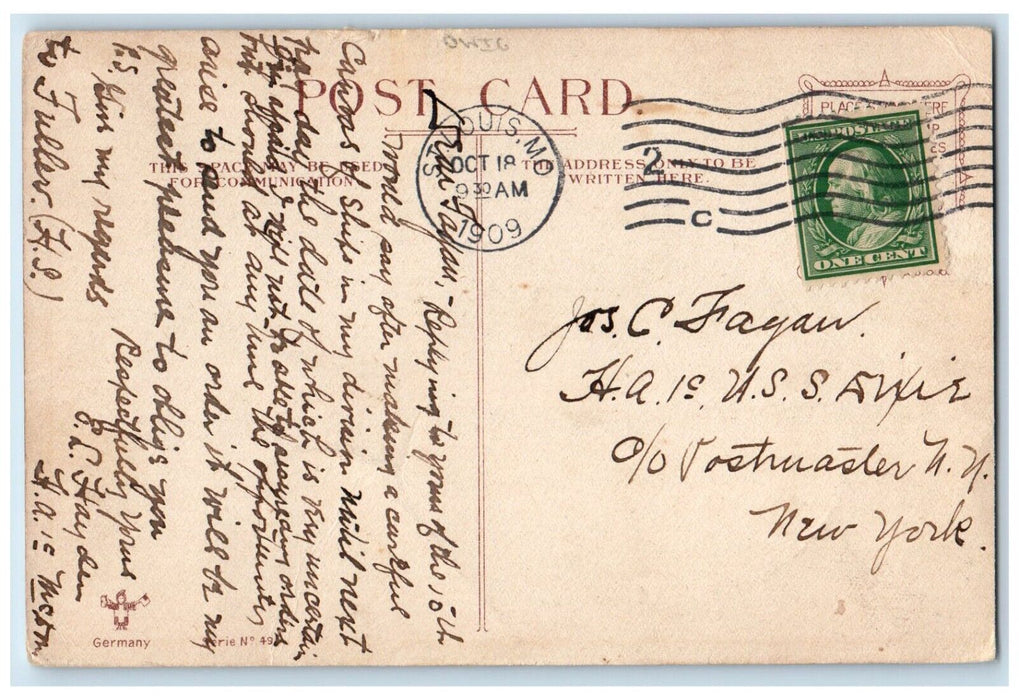 OHIO
POST CARD.
THIS SPACE MAY BE USED
FOR COMMUNICATION.
THE ADDRESS ONLY TO BE
WRITTEN HERE.
ST. LOUIS, MO
OCT 18
9 30 AM
1909
2
C
U.S. POSTAGE
ONE CENT
Jos. C. Fagan.
H.A. 1c, U.S.S. Dixie
c/o Postmaster N.Y.
New York.
Fagan, - Replying to yours of the 10th
Would say after making a careful
Canvas of Ships in my division until next
pay day the date of which is very uncertain
but should at any time the opportunity
arise to send you an order it will be my
greatest pleasure to oblige you
Respectfully yours
E. L. Hayden
H.A. 1c
P.S. Give my regards
to Fuller. (H.S.)
Germany
Serie No 49